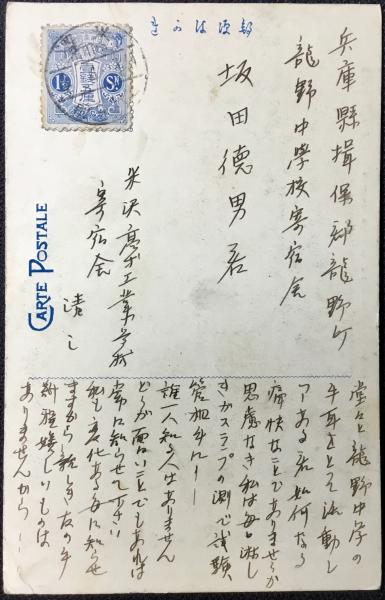 きかは便郵
兵庫縣揖保郡龍野町
龍野中學校寄宿舍
坂田德男君
米沢高等工業学校
寄宿舍
清之
1½ SN
CARTE POSTALE
堂々と龍野中学の
牛耳をとって活動し
つゝある君如何なる
痛快なことでありませうか
思慮なき私は毎日淋し
きかスランプの測で試験
管握りに――
誰一人知る人はありません
どうか面白いことでもあれば
常に知らせて下さい
私も変化ある毎に知らせ
ますから 親しき友の手
紙程嬉しいものは
ありませんから――